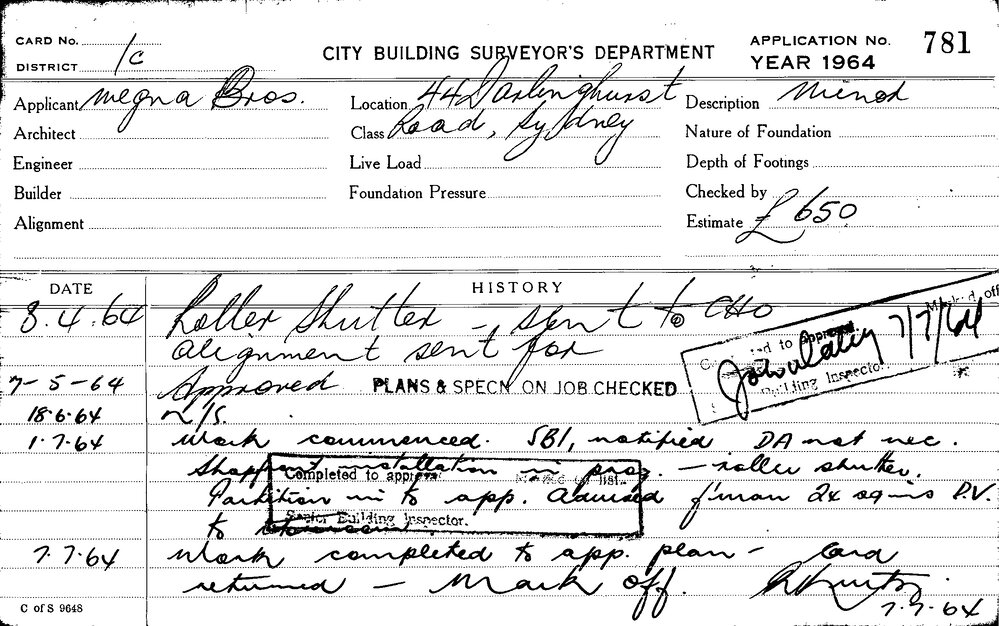 CARD No.
DISTRICT 1c
CITY BUILDING SURVEYOR'S DEPARTMENT
APPLICATION No. 781
YEAR 1964
Applicant Megna Bros.
Location 442 Darlinghurst
Description Minor
Architect
Class Road, Sydney
Nature of Foundation
Engineer
Live Load
Depth of Footings
Builder
Foundation Pressure
Checked by
Alignment
Estimate £ 650
DATE HISTORY
8.4.64 Roller Shutter – sent to CHO
alignment sent for
7-5-64 Approved PLANS & SPECN ON JOB CHECKED
Building Inspector.
7/7/64
18.6.64 N/S.
1.7.64 Work commenced. SBI, notified DA not nec.
Shopfront installation in prog. – roller shutter.
Completed to approval list.
Partition in to app. Advised f'man 24 sq ins P.V.
to
Senior Building Inspector.
7.7.64 Work completed to app. plan – Card
returned – Mark off.
7.7.64
C of S 9648